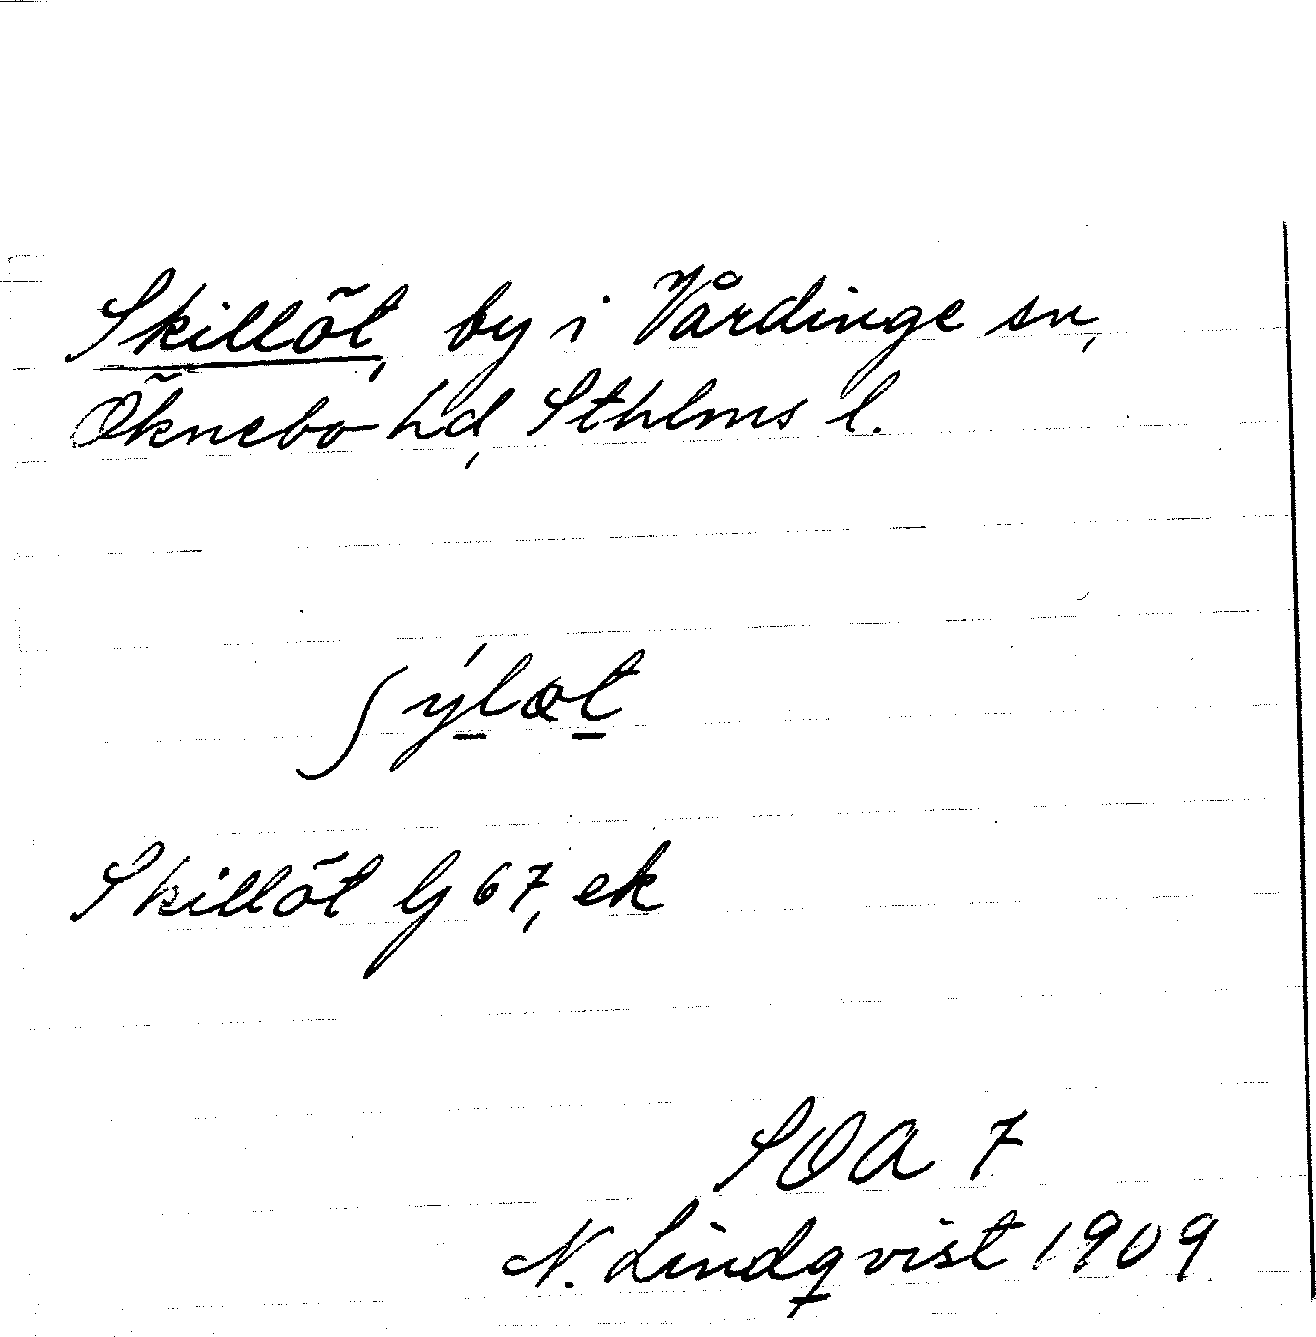 Skillöt, by i Vårdinge sn,
Öknebo hd, Sthlms l.
ʃýlөt
Skillöt Gj 67, ek
SOA 7
N. Lindqvist 1909